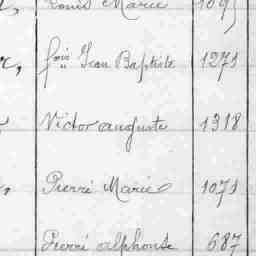 Louis Marie 1095
fois Jean Baptiste 1271
Victor auguste 1318
Pierre Marie 1071
Pierre alphonse 687